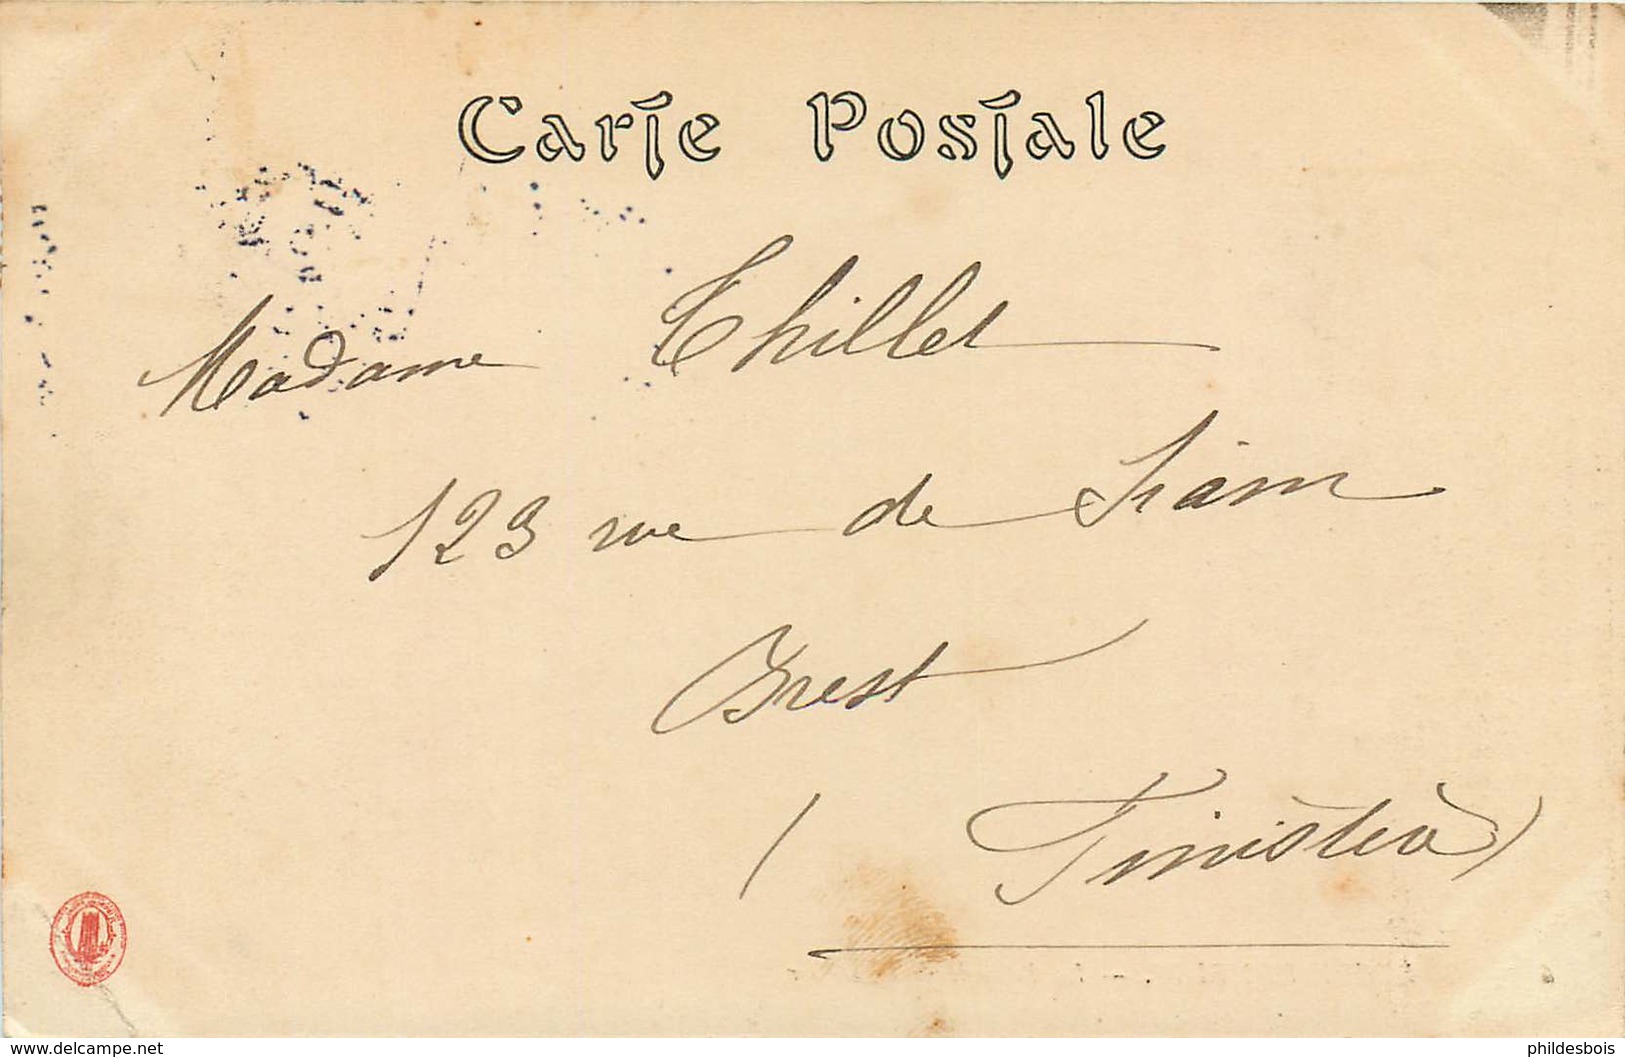 Carte Postale
Madame Thillet
123 rue de Siam
Brest
( Finistère )
delcampe.net
phildesbois